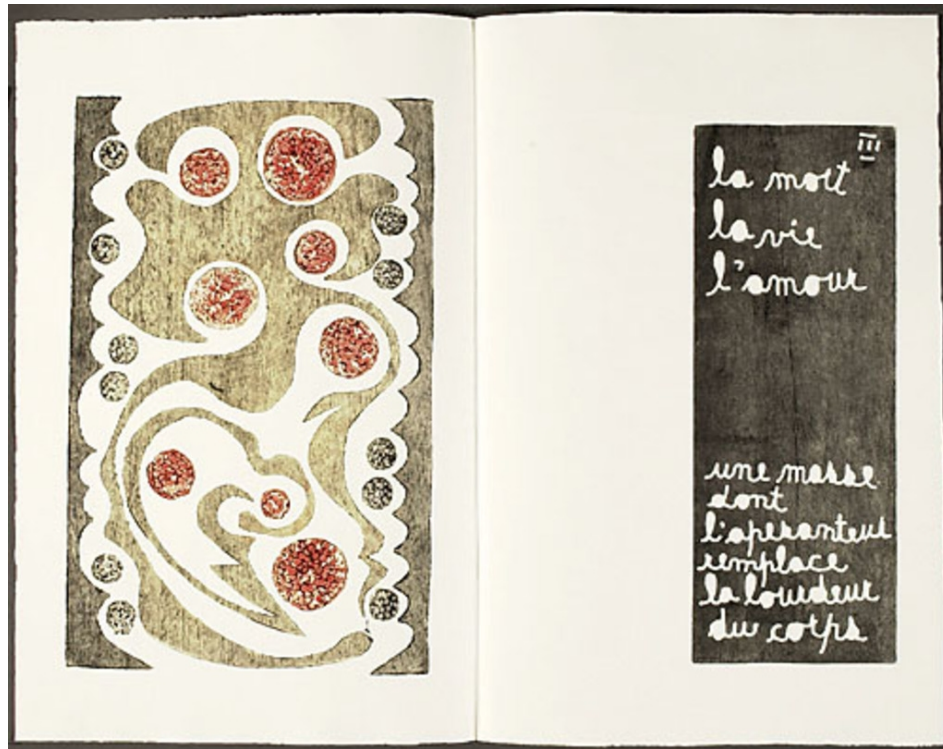 III
la mort
la vie
l'amour
une masse
dont
l'apesanteur
remplace
la lourdeur
du corps